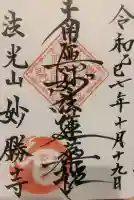 令和七年十月十九日
妙法蓮華経
法光山 妙勝寺